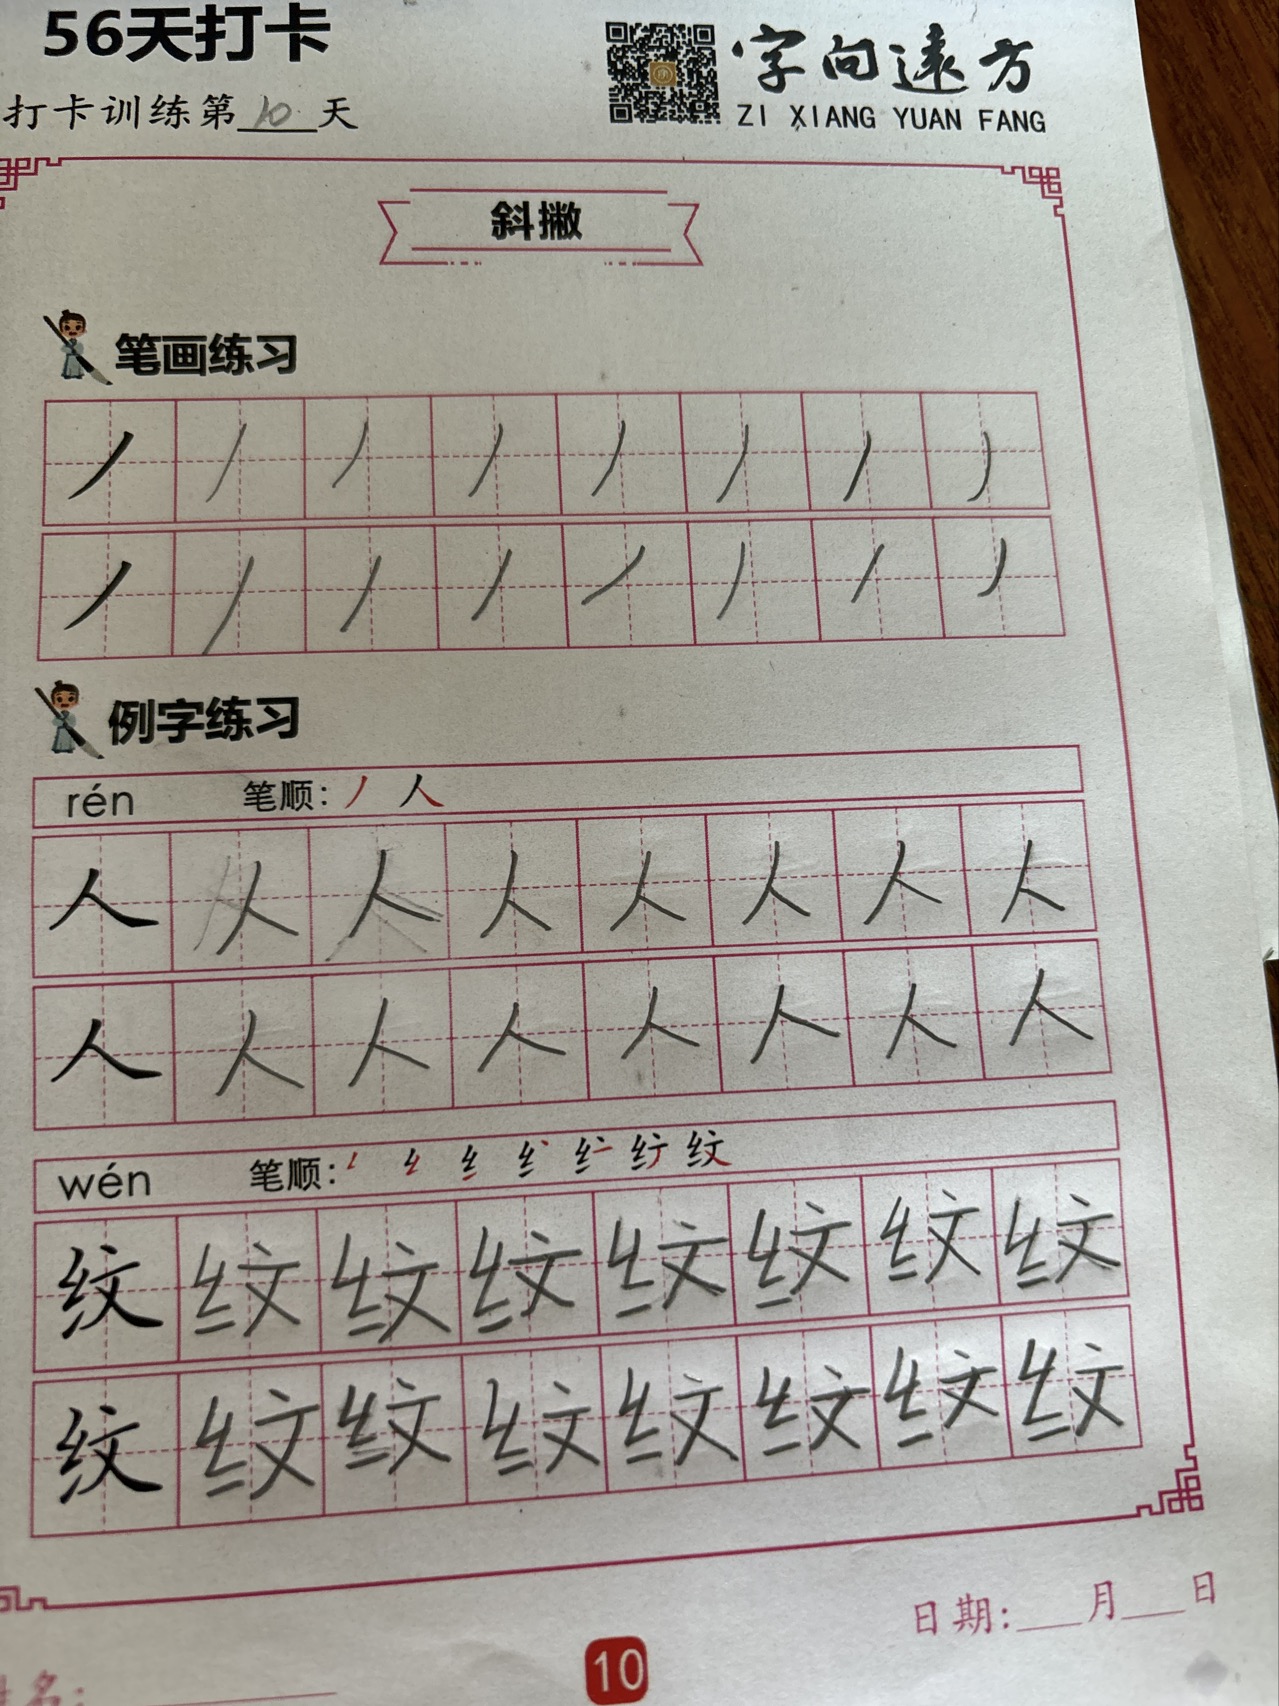 56天打卡
字向遠方
打卡训练第10天
ZI XIANG YUAN FANG
斜撇
笔画练习
丿丿丿丿丿丿丿丿
丿丿丿丿丿丿丿丿
例字练习
rén 笔顺: 丿 人
人人人人人人人人
人人人人人人人人
wén 笔顺:
纹纹纹纹纹纹纹纹
纹纹纹纹纹纹纹纹
日期:___月___日
10
名: